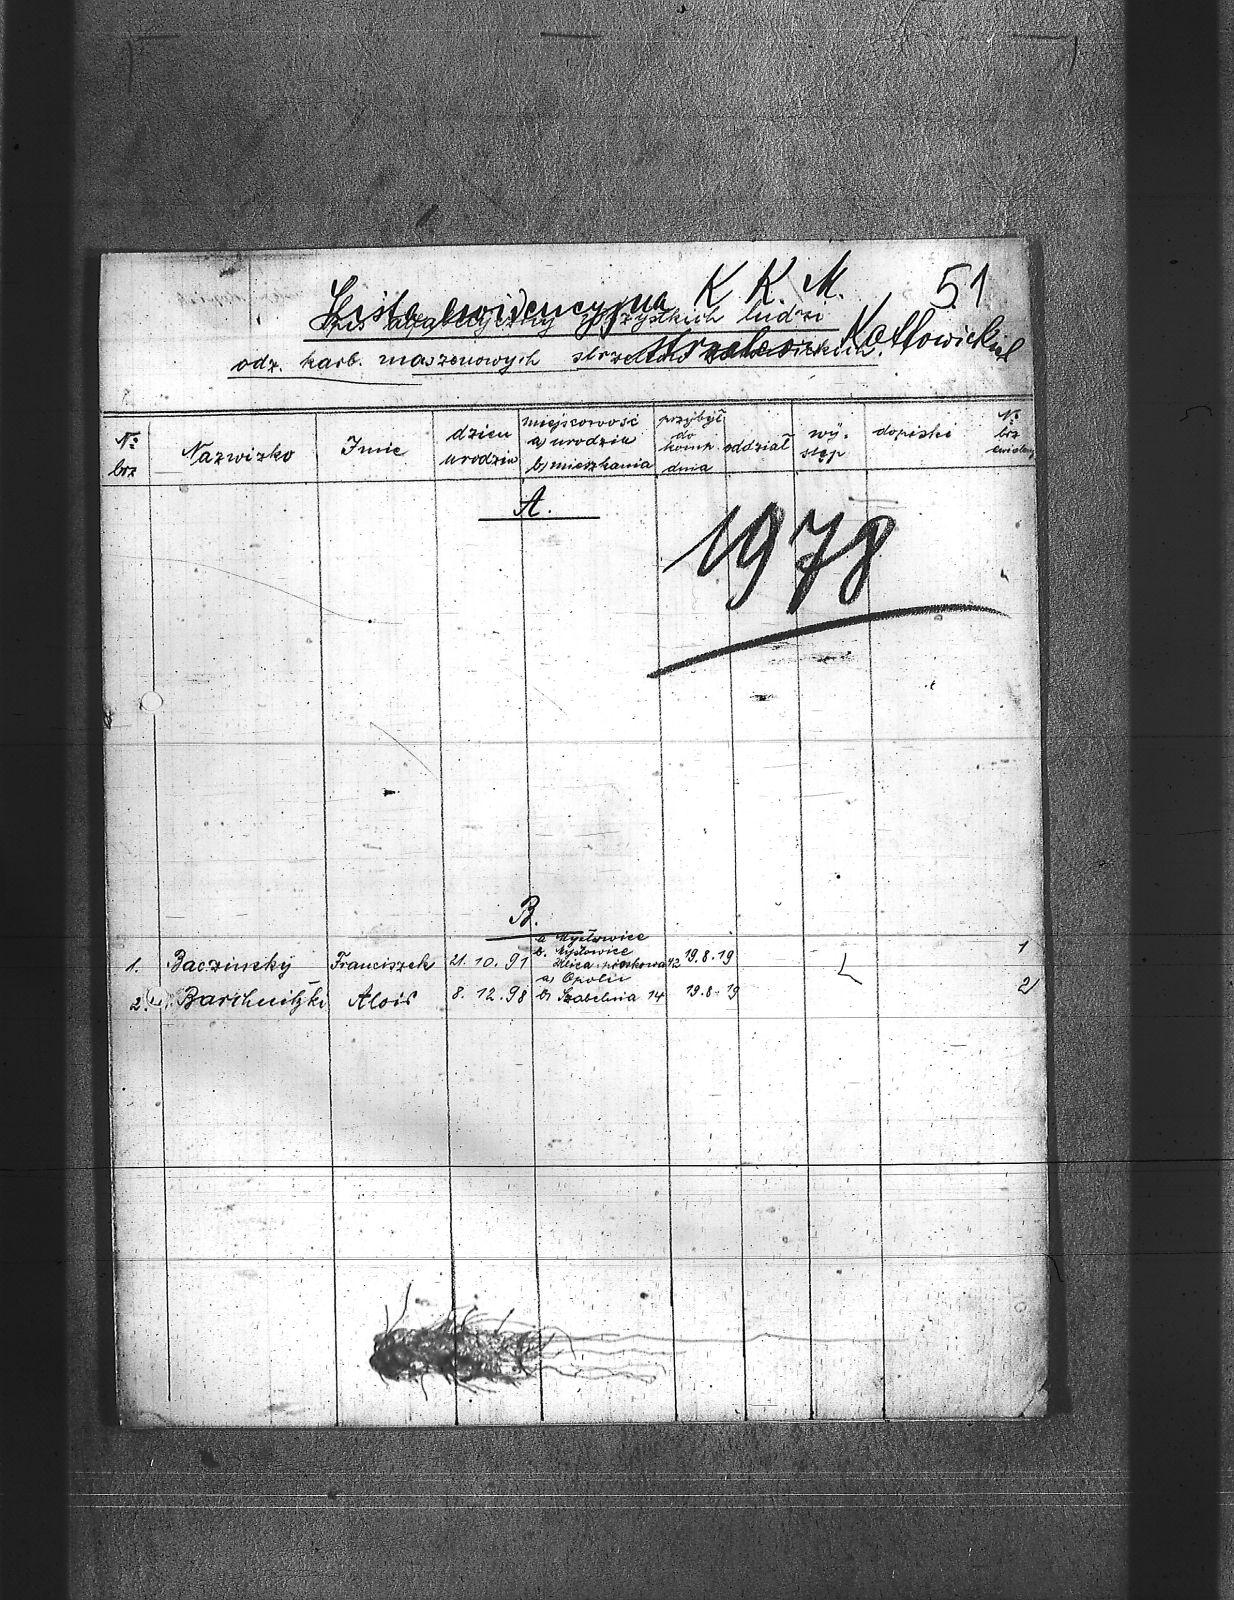 Lista ewidencyjna K. K. M. 51
Spis alfabetyczny wszystkich ludzi
odz. karb. maszenowych strzelców Katowickich.
strzelców Kattowickich
№ brz
Nazwizko
Imie
dzień urodzin
miejscowość a, urodzin b, mieszkania
przybył do komp. dnia
oddział
wy. stęp
dopiski
№ brz ewidency
A.
1978
B.
1. Baczinsky Franciszek 21. 10. 91 a Mysłowice b. Mysłowice Ulica piaskowa 42 19. 8. 19 1
2. Barchnitzki Alois 8. 12. 98 a, Opolu b, Szabelnia 14 19. 8. 19 2